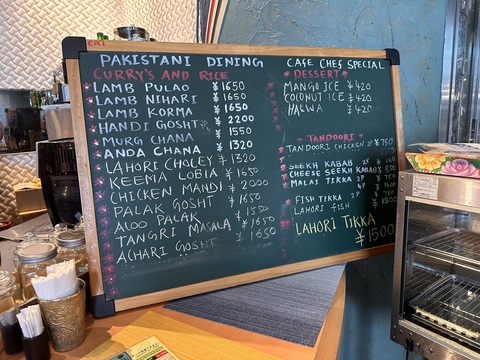 PAKISTANI DINING
CURRY'S AND RICE
LAMB PULAO ¥1650
LAMB NIHARI ¥1650
LAMB KORMA ¥1650
HANDI GOSHT ¥2200
MURG CHANA ¥1550
ANDA CHANA ¥1320
LAHORI CHOLEY ¥1320
KEEMA LOBIA ¥1650
CHICKEN MANDI ¥2000
PALAK GOSHT ¥1650
ALOO PALAK ¥1550
TANGRI MASALA ¥1650
ACHARI GOSHT ¥1650
CAFE CHEF SPECIAL
DESSERT
MANGO ICE ¥420
COCONUT ICE ¥420
HALWA ¥420
TANDOORI
TANDOORI CHICKEN 2P ¥750
SEEKH KABAB
CHEESE SEEKH KABAB
MALAI TIKKA
FISH TIKKA
LAHORI FISH
LAHORI TIKKA
¥1500